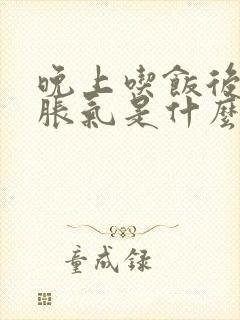 晚上喫飯後
脹氣是什麼
童成録